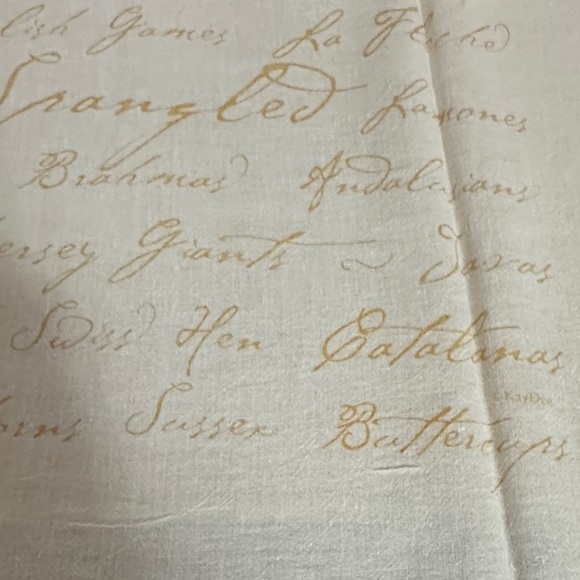 lish Games La Fleche
Spangled Lakones
Brahmas Andalusians
ersey Giants ~ Javas
Swiss Hen Catalanas
©KayDee
orns Sussex Buttercups